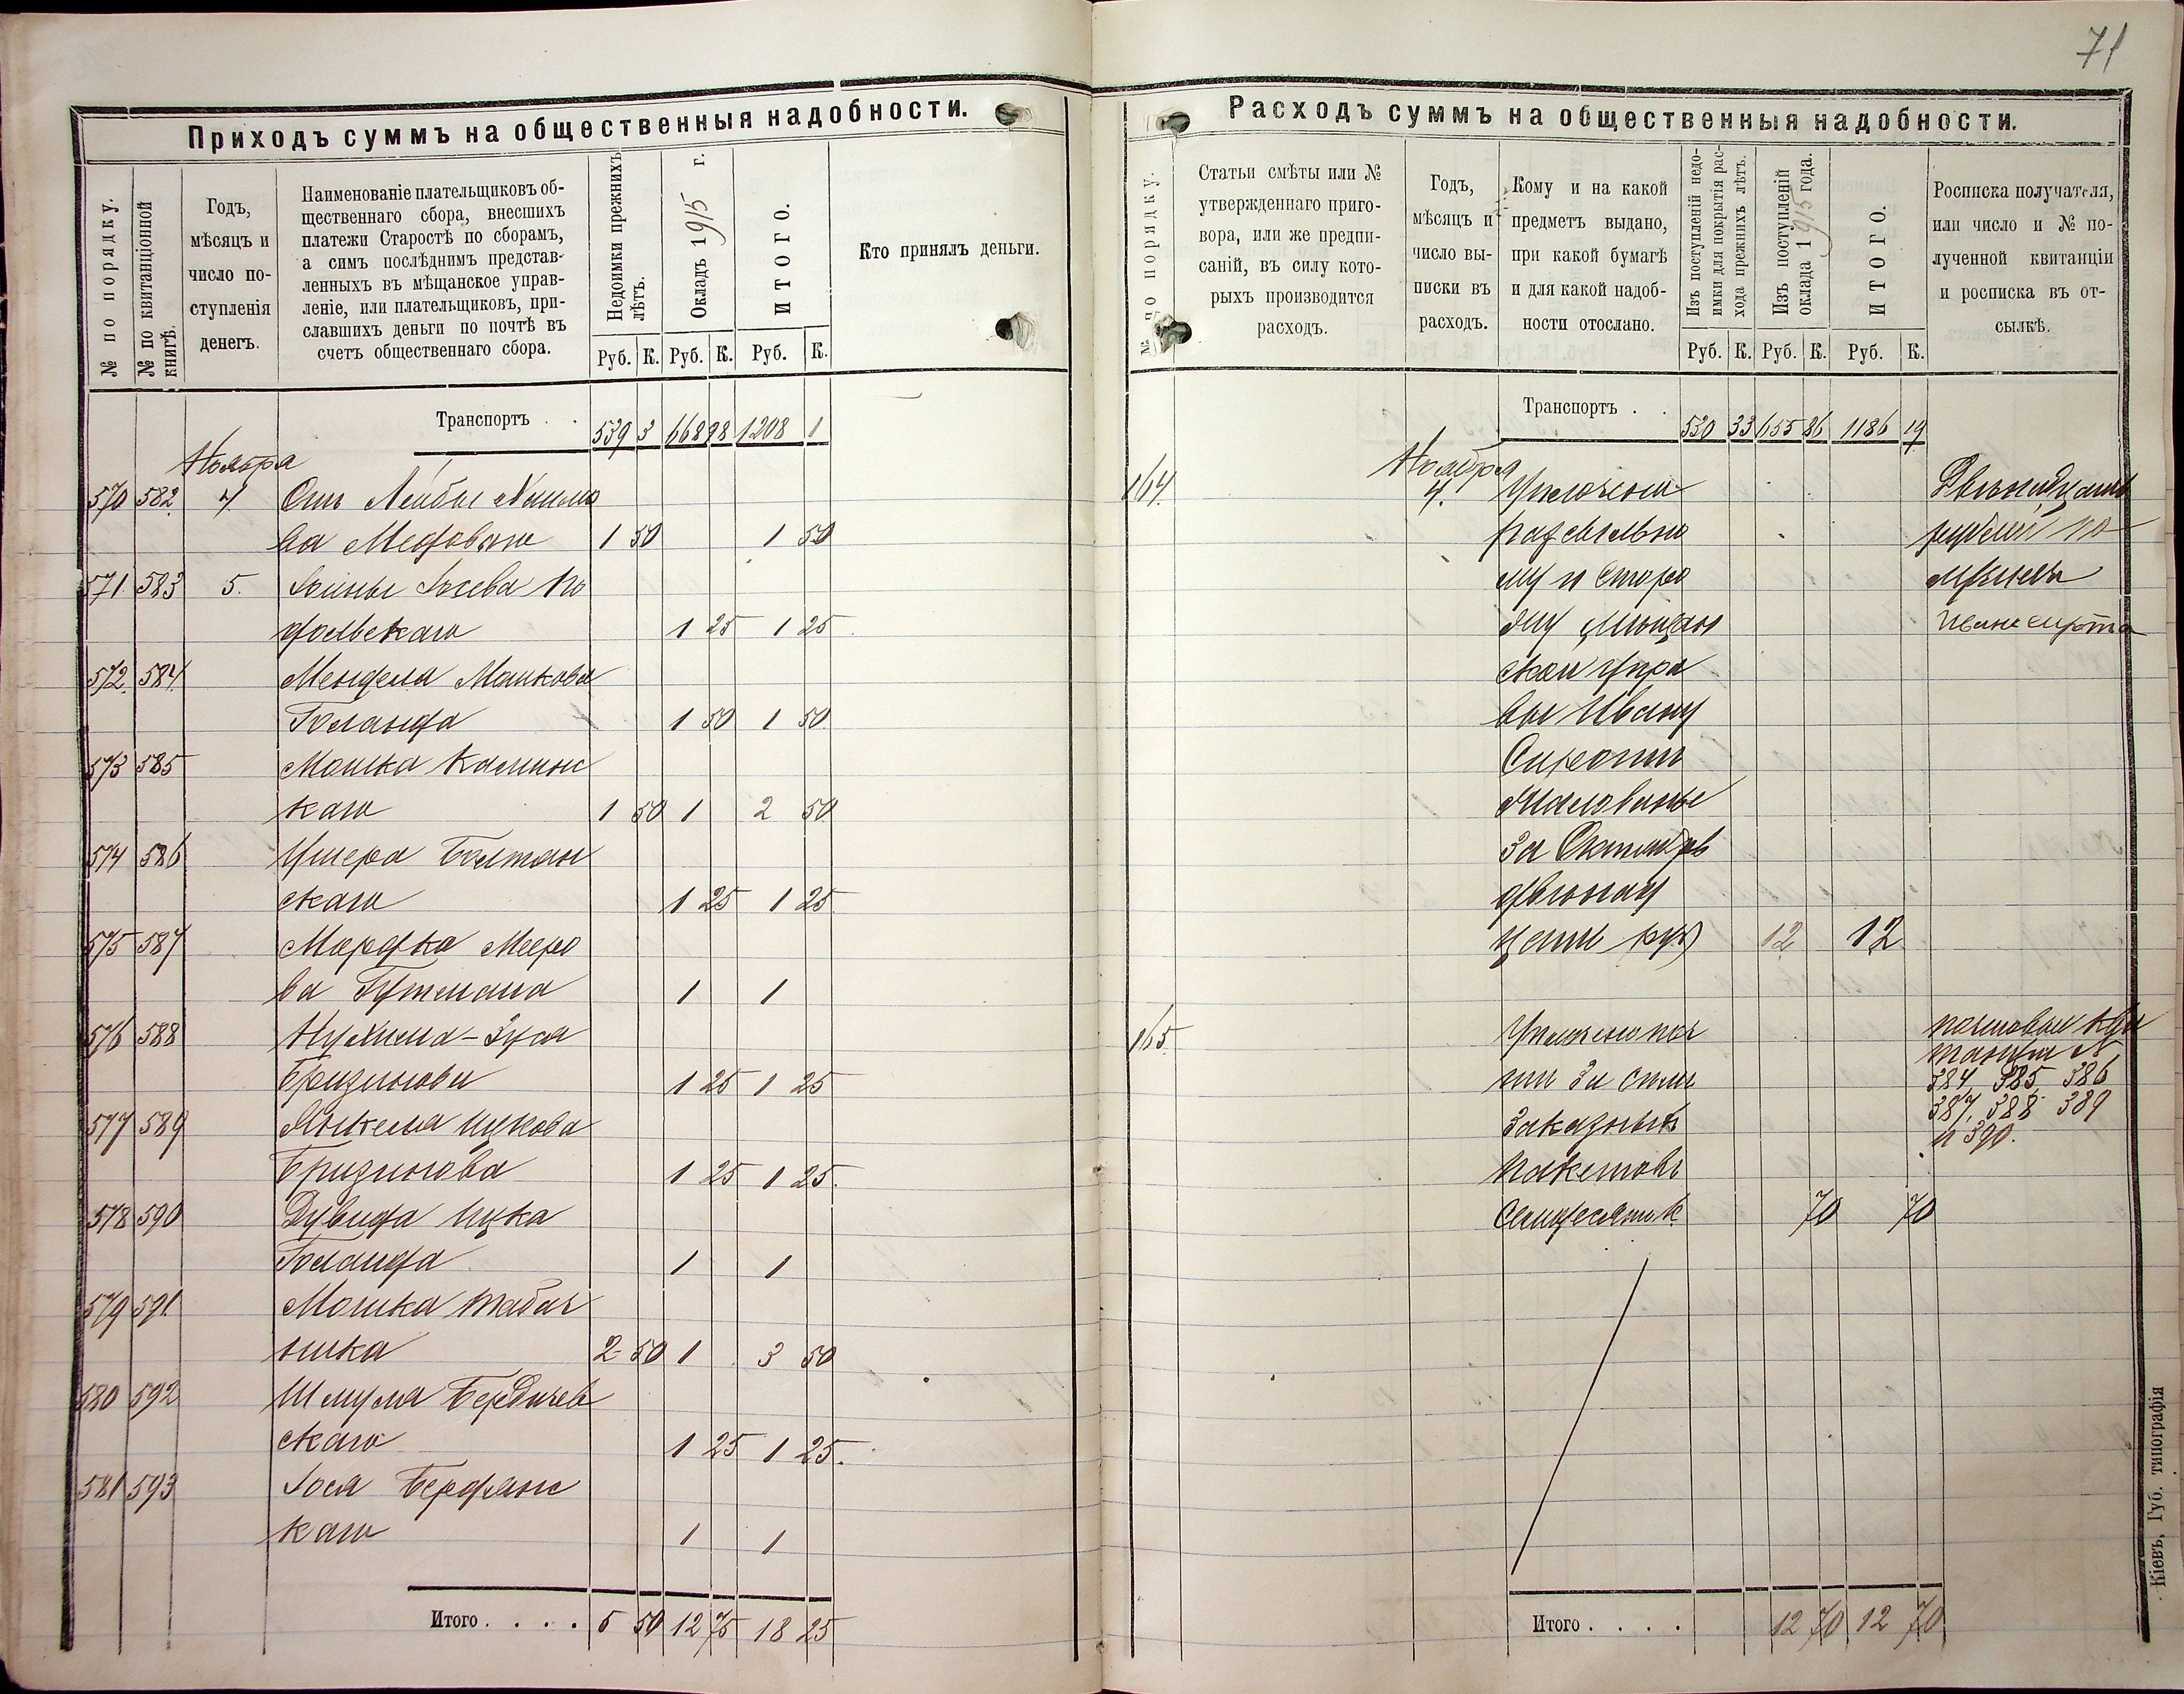 71
Приходъ суммъ на общественныя надобности.
№ по порядку.
№ по квитанціонной
книгѣ.
Годъ,
мѣсяцъ и
число по-
ступленія
денегъ.
Наименованіе плательщиковъ об-
щественнаго сбора, внесшихъ
платежи Старостѣ по сборамъ,
а симъ послѣднимъ представ-
ленныхъ въ мѣщанское управ-
леніе, или плательщиковъ, при-
славшихъ деньги по почтѣ въ
счетъ общественнаго сбора.
Недоимки прежнихъ
лѣтъ.
Окладъ 1915 г.
ИТОГО.
Кто принялъ деньги.
Руб. К. Руб. К. Руб. К.
Транспортъ . . 539 3 668 98 1208 1
Ноября
570 582 4 Отъ Лейбы Хаимо
ва Медоваго 1 50 1 50
571 583 5. 
дольскаго 1 25 1 25
572 584 Менделя Мошкова
Голанда 1 50 1 50
573 585 Мошка Каминс
каго 1 50 1 2 50
574 586 Ушера Балтан
скаго 1 25 1 25
575 587 Мордка Мееро
ва Гутмана 1 1
576 588 Нухима-Зуся
Бризинова 1 25 1 25
577 589 Янкеля Ицкова
Бризинова 1 25 1 25
578 590 Дувида Ицка
Голанда 1 1
579 591 Мошка Табач
ника 2 50 1 3 50
580 592 Шмуля Бердичев
скаго 1 25 1 25
581 593 Іося Бердянс
каго 1 1
Итого . . . . 5 50 12 75 18 25
Расходъ суммъ на общественныя надобности.
№ по порядку.
Статьи смѣты или №
утвержденнаго приго-
вора, или же предпи-
саній, въ силу кото-
рыхъ производится
расходъ.
Годъ,
мѣсяцъ и
число вы-
писки въ
расходъ.
Кому и на какой
предметъ выдано,
при какой бумагѣ
и для какой надоб-
ности отослано.
Изъ поступленій недо-
имки для покрытія рас-
хода прежнихъ лѣтъ.
Изъ поступленій
оклада 1915 года.
ИТОГО.
Росписка получателя,
или число и № по-
лученной квитанціи
и росписка въ от-
сылкѣ.
Руб. К. Руб. К. Руб. К.
Транспортъ . . 530 33 655 86 1186 19
Ноября
164. 4. Уплочено Двѣнадцать
разсыльно рублей по
му и Сторо лучилъ
жу Мѣщан Иван Сирота
ской Упра
вы Ивану
Сиротѣ
Жалованье
за Октябрь
двѣнад
цать руб 12 12
165. Уплочено поч почтовыи кви
тѣ за семь танціи №
384, 385, 386
заказныхъ 387, 388 389
и 390.
пакетовъ
Семдесять к 70 70
Итого . . . . 12 70 12 70
Кіевъ, Губ. типографія